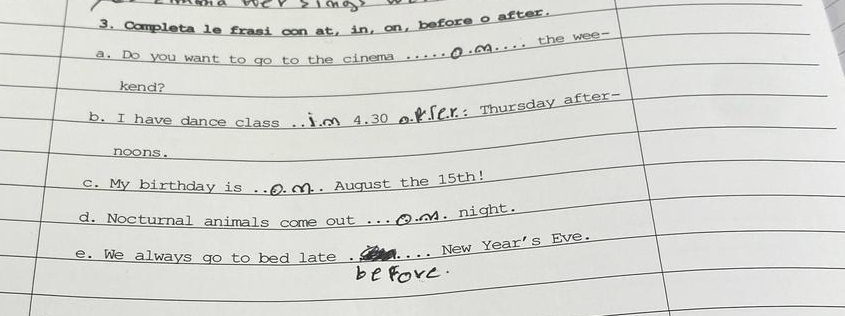 3. Completa le frasi con at, in, on, before o after.
a. Do you want to go to the cinema .....on.... the wee-
kend?
b. I have dance class ..in 4.30 after.: Thursday after-
noons.
c. My birthday is ..on.. August the 15th!
d. Nocturnal animals come out ...on. night.
e. We always go to bed late ..... New Year's Eve.
before.